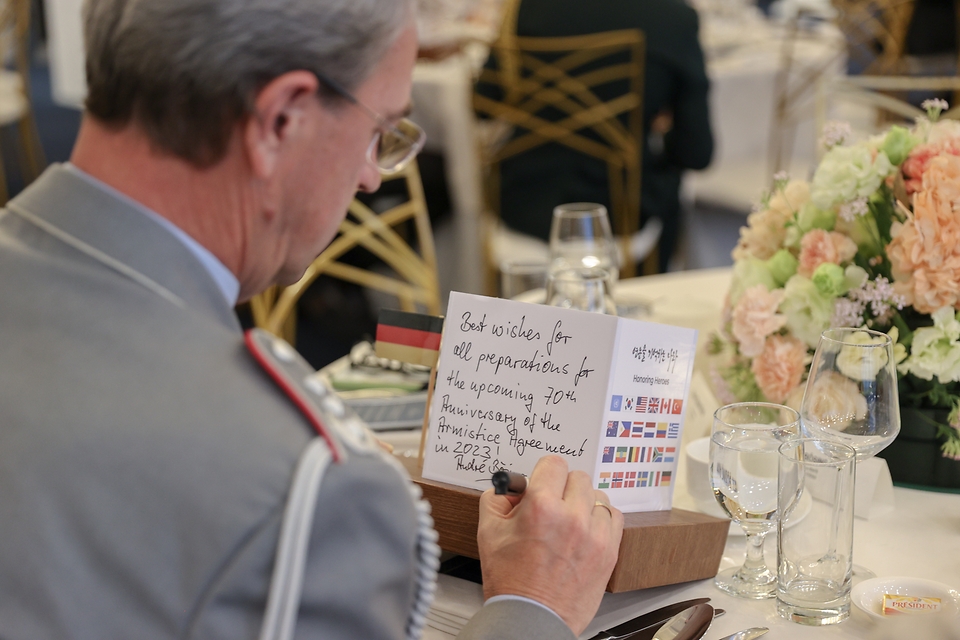 Best wishes for
all preparations for
the upcoming 70th
Anniversary of the
Armistice Agreement
in 2023!
André
Honoring Heroes
PRÉSIDENT